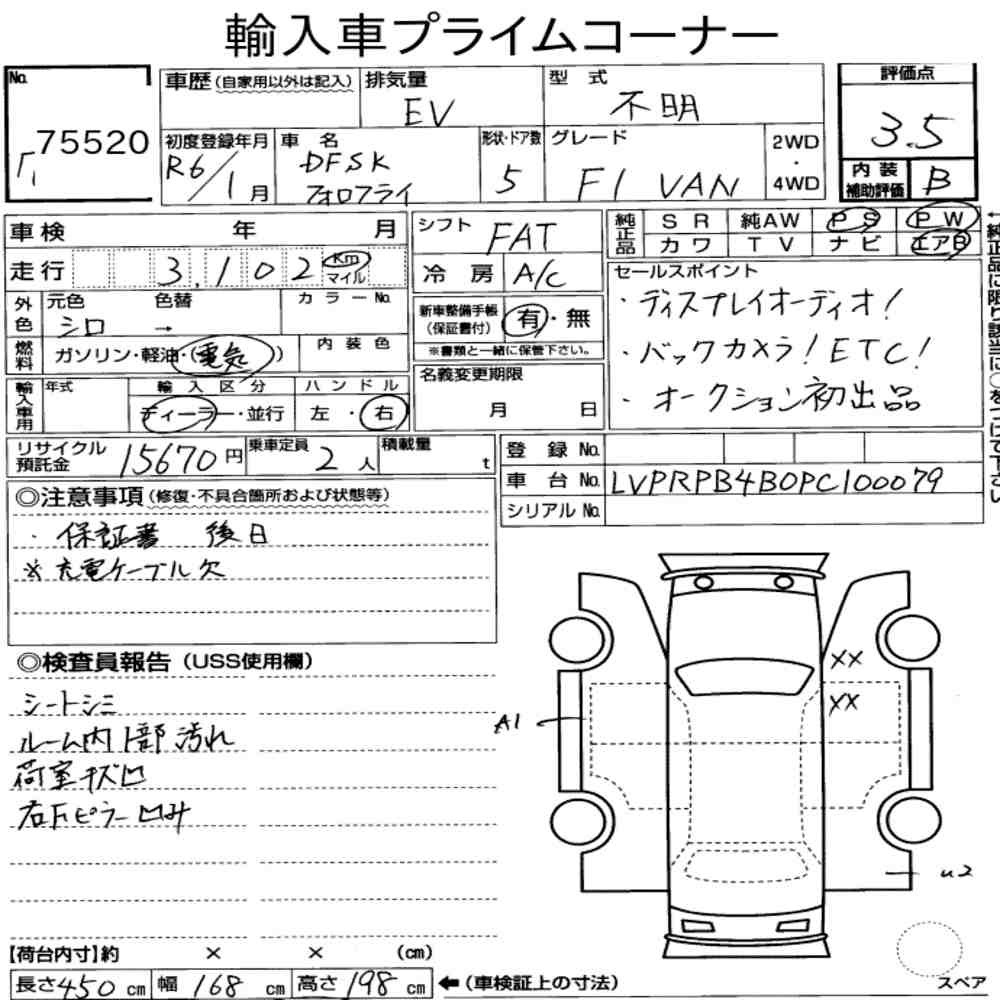 輸入車プライムコーナー
No.
75520
車歴(自家用以外は記入)
排気量
EV
型 式
不明
評価点
3.5
内装補助評価
B
初度登録年月
R6/1月
車 名
DFSK
フォロフライ
形状・ドア数
5
グレード
F1 VAN
2WD
・
4WD
車検 年 月
走行 3,102 Km マイル
シフト
FAT
冷房 A/C
純正品
SR 純AW PS PW
カワ TV ナビ エアB
←純正品に限り該当に○をつけて下さい
外色
元色 色替 カラーNo.
シロ →
燃料
ガソリン・軽油・(電気)
内装色
新車整備手帳(保証書付) 有・無
※書類と一緒に保管下さい。
セールスポイント
・ディスプレイオーディオ!
・バックカメラ!ETC!
・オークション初出品
輸入車用
年式
輸入区分
ディーラー・並行
ハンドル
左・右
名義変更期限
月 日
リサイクル預託金 15670円
乗車定員 2人
積載量 t
登録No.
車台No. LVPRPB4B0PC100079
シリアルNo.
◎注意事項(修復・不具合箇所および状態等)
・保証書 後日
※充電ケーブル欠
◎検査員報告(USS使用欄)
シートシミ
ルーム内1部汚れ
荷室キズ凹
右Fピラー凹み
XX
XX
A1
U2
スペア
【荷台内寸】約 × × (cm)
長さ450cm 幅168cm 高さ198cm ←(車検証上の寸法)